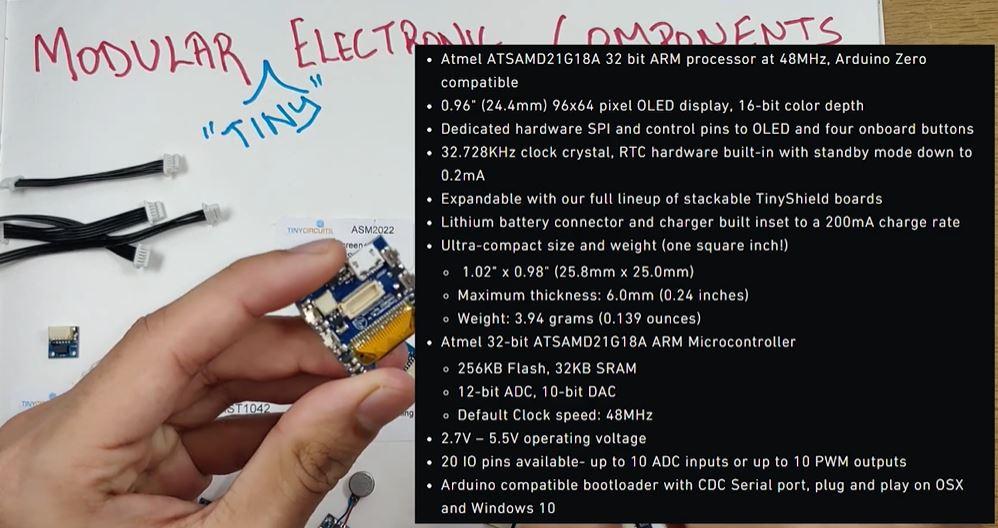 MODULAR ELECTRONIC COMPONENTS
"TINY"
• Atmel ATSAMD21G18A 32 bit ARM processor at 48MHz, Arduino Zero
compatible
• 0.96" (24.4mm) 96x64 pixel OLED display, 16-bit color depth
• Dedicated hardware SPI and control pins to OLED and four onboard buttons
• 32.728KHz clock crystal, RTC hardware built-in with standby mode down to
0.2mA
• Expandable with our full lineup of stackable TinyShield boards
• Lithium battery connector and charger built inset to a 200mA charge rate
• Ultra-compact size and weight (one square inch!)
◦ 1.02" x 0.98" (25.8mm x 25.0mm)
◦ Maximum thickness: 6.0mm (0.24 inches)
◦ Weight: 3.94 grams (0.139 ounces)
• Atmel 32-bit ATSAMD21G18A ARM Microcontroller
◦ 256KB Flash, 32KB SRAM
◦ 12-bit ADC, 10-bit DAC
◦ Default Clock speed: 48MHz
• 2.7V – 5.5V operating voltage
• 20 IO pins available- up to 10 ADC inputs or up to 10 PWM outputs
• Arduino compatible bootloader with CDC Serial port, plug and play on OSX
and Windows 10
TINYCIRCUITS ASM2022
ST1042